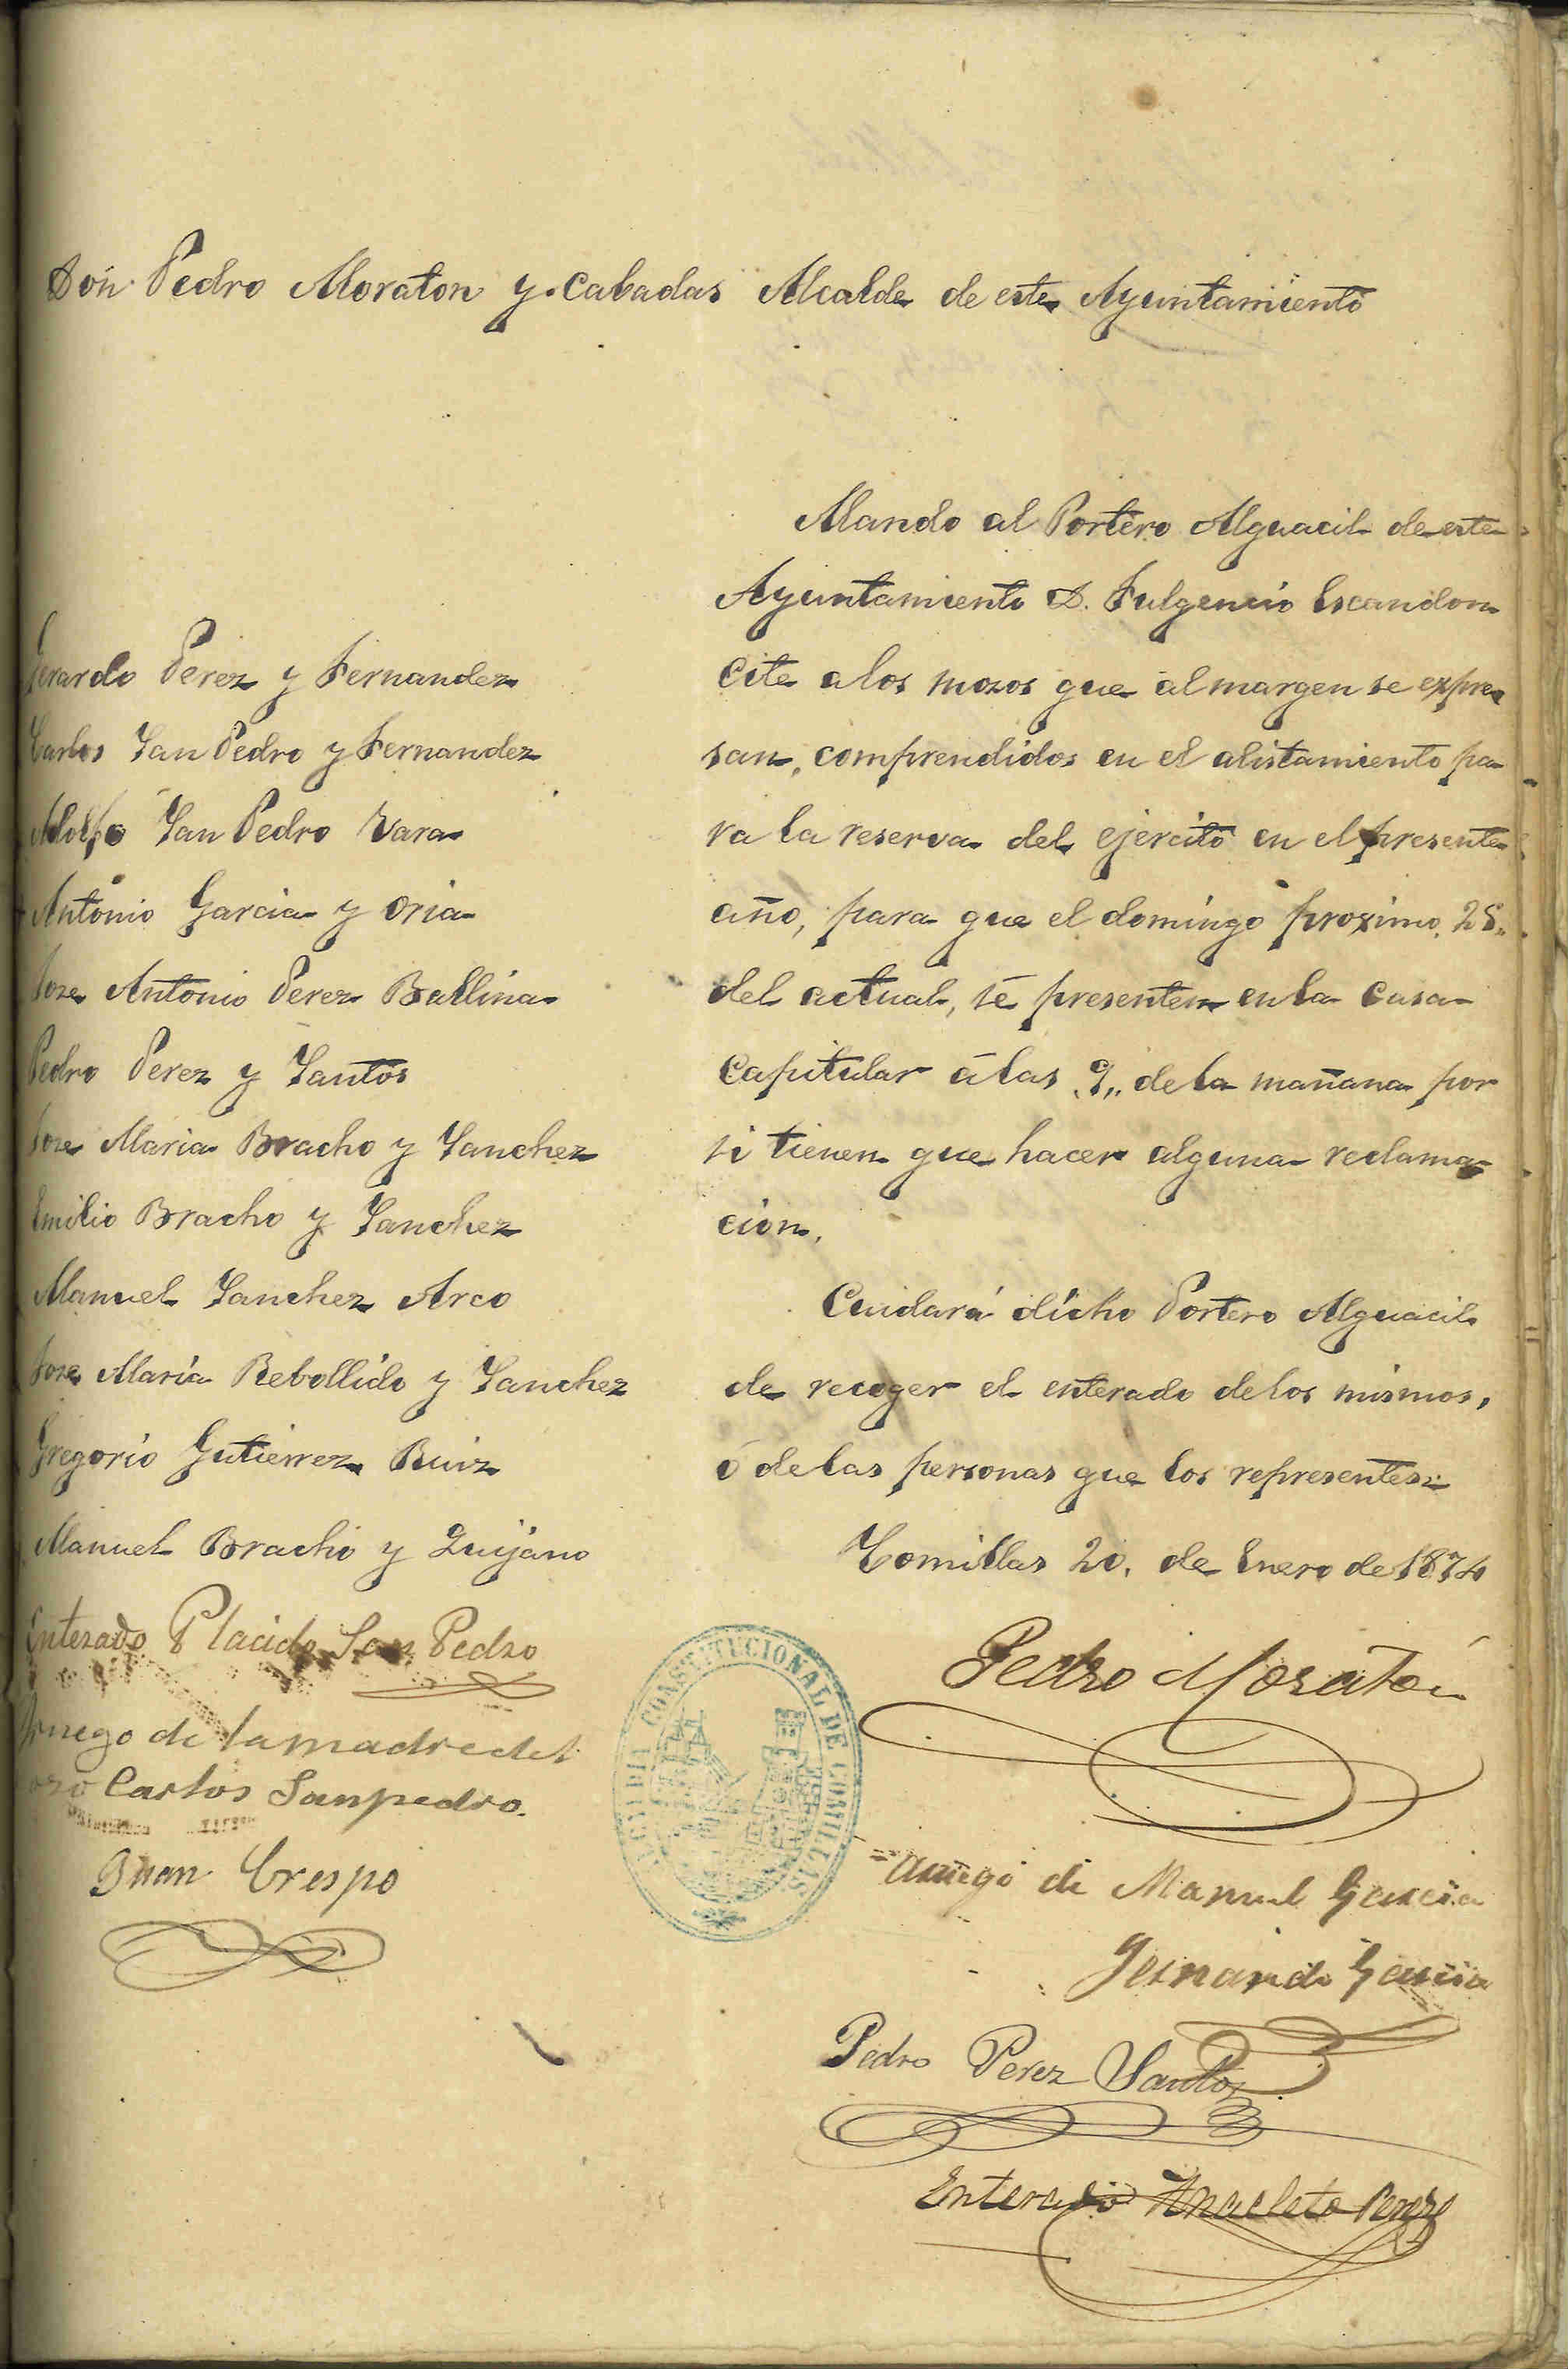 Don Pedro Moraton y Cabadas Alcalde de este Ayuntamiento
Gerardo Perez y Fernandez
Carlos San Pedro y Fernandez
Adolfo San Pedro Vara
Antonio Garcia y Oria
Jose Antonio Perez Ballina
Pedro Perez y Santos
Jose Maria Bracho y Sanchez
Emilio Bracho y Sanchez
Manuel Sanchez Arco
Jose María Rebollido y Sanchez
Gregorio Gutierrez Ruiz
Manuel Bracho y Quijano
Enterado Placido San Pedro
Arruego de la madre del
mozo Carlos Sanpedro.
Juan Crespo
Mando al Portero Alguacil de este
Ayuntamiento D. Fulgencio Escandon
cite a los mozos que al margen se expre
san, comprendidos en el alistamiento pa-
ra la reserva del ejercito en el presente
año, para que el domingo proximo, 25,
del actual, se presenten en la Casa
Capitular á las 9, de la mañana por
si tienen que hacer alguna reclama-
cion.
Cuidará dicho Portero Alguacil
de recoger el enterado de los mismos,
ó de las personas que los representen
Comillas 20, de Enero de 1874
Pedro Moratón
ALCALDIA CONSTITUCIONAL DE COMILLAS
Arruego de Manuel Garcia
Fernando Garcia
Pedro Perez Santos
Enterado Anacleto Perez